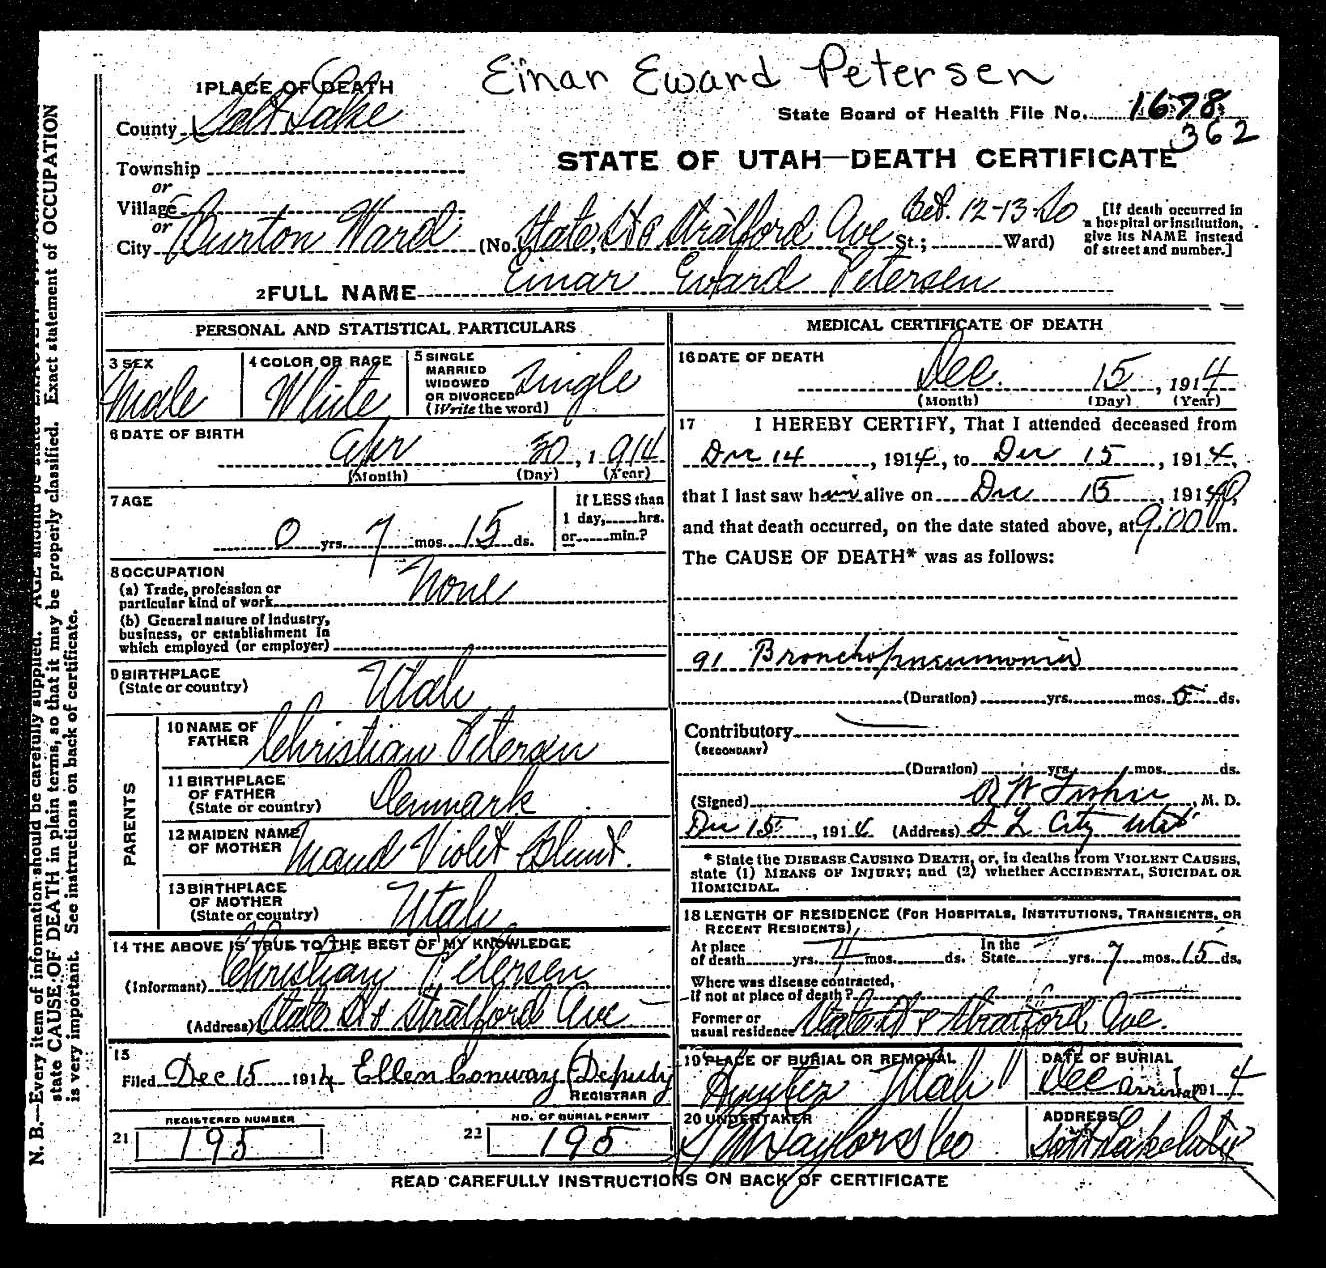 Einar Eward Petersen
1 PLACE OF DEATH
County Salt Lake
State Board of Health File No. 1678
362
STATE OF UTAH—DEATH CERTIFICATE
Township
or
Village
or
City Burton Ward (No. State St & Stratford Ave Bet. 12-13-20 St.; Ward)
[If death occurred in a hospital or institution, give its NAME instead of street and number.]
2 FULL NAME Einar Eward Petersen
PERSONAL AND STATISTICAL PARTICULARS
3 SEX Male
4 COLOR OR RACE White
5 SINGLE MARRIED WIDOWED OR DIVORCED (Write the word) Single
6 DATE OF BIRTH Apr 30, 1914
(Month) (Day) (Year)
7 AGE 0 yrs. 7 mos. 15 ds.
If LESS than 1 day, hrs. or min.?
8 OCCUPATION
(a) Trade, profession or particular kind of work None
(b) General nature of industry, business, or establishment in which employed (or employer)
9 BIRTHPLACE (State or country) Utah
PARENTS
10 NAME OF FATHER Christian Petersen
11 BIRTHPLACE OF FATHER (State or country) Denmark
12 MAIDEN NAME OF MOTHER Maud Violet Blunt.
13 BIRTHPLACE OF MOTHER (State or country) Utah
14 THE ABOVE IS TRUE TO THE BEST OF MY KNOWLEDGE
(Informant) Christian Petersen
(Address) State St & Stratford Ave
15 Filed Dec 15 1914 Ellen Conway (Deputy
REGISTRAR
REGISTERED NUMBER
21 195
NO. OF BURIAL PERMIT
22 195
MEDICAL CERTIFICATE OF DEATH
16 DATE OF DEATH Dec. 15, 1914
(Month) (Day) (Year)
17 I HEREBY CERTIFY, That I attended deceased from
Dec 14, 1914, to Dec 15, 1914,
that I last saw him alive on Dec 15, 1914,
and that death occurred, on the date stated above, at 9:00 m.
The CAUSE OF DEATH* was as follows:
91 Bronchopneumonia
(Duration) yrs. mos. 5 ds.
Contributory
(SECONDARY)
(Duration) yrs. mos. ds.
(Signed) , M. D.
Dec 15, 1914 (Address) S L City Utah
* State the DISEASE CAUSING DEATH, or, in deaths from VIOLENT CAUSES, state (1) MEANS OF INJURY; and (2) whether ACCIDENTAL, SUICIDAL OR HOMICIDAL.
18 LENGTH OF RESIDENCE (FOR HOSPITALS, INSTITUTIONS, TRANSIENTS, OR RECENT RESIDENTS)
At place of death yrs. 4 mos. ds. In the State yrs. 7 mos. 15 ds.
Where was disease contracted, if not at place of death?
Former or usual residence State St & Stratford Ave.
19 PLACE OF BURIAL OR REMOVAL Hunter Utah
DATE OF BURIAL Dec arrival 1914
20 UNDERTAKER S M Taylor & Co
ADDRESS Salt Lake City
READ CAREFULLY INSTRUCTIONS ON BACK OF CERTIFICATE
N. B.—Every item of information should be carefully supplied. AGE should be stated
state CAUSE OF DEATH in plain terms, so that it may be properly classified. Exact statement of OCCUPATION
is very important. See instructions on back of certificate.